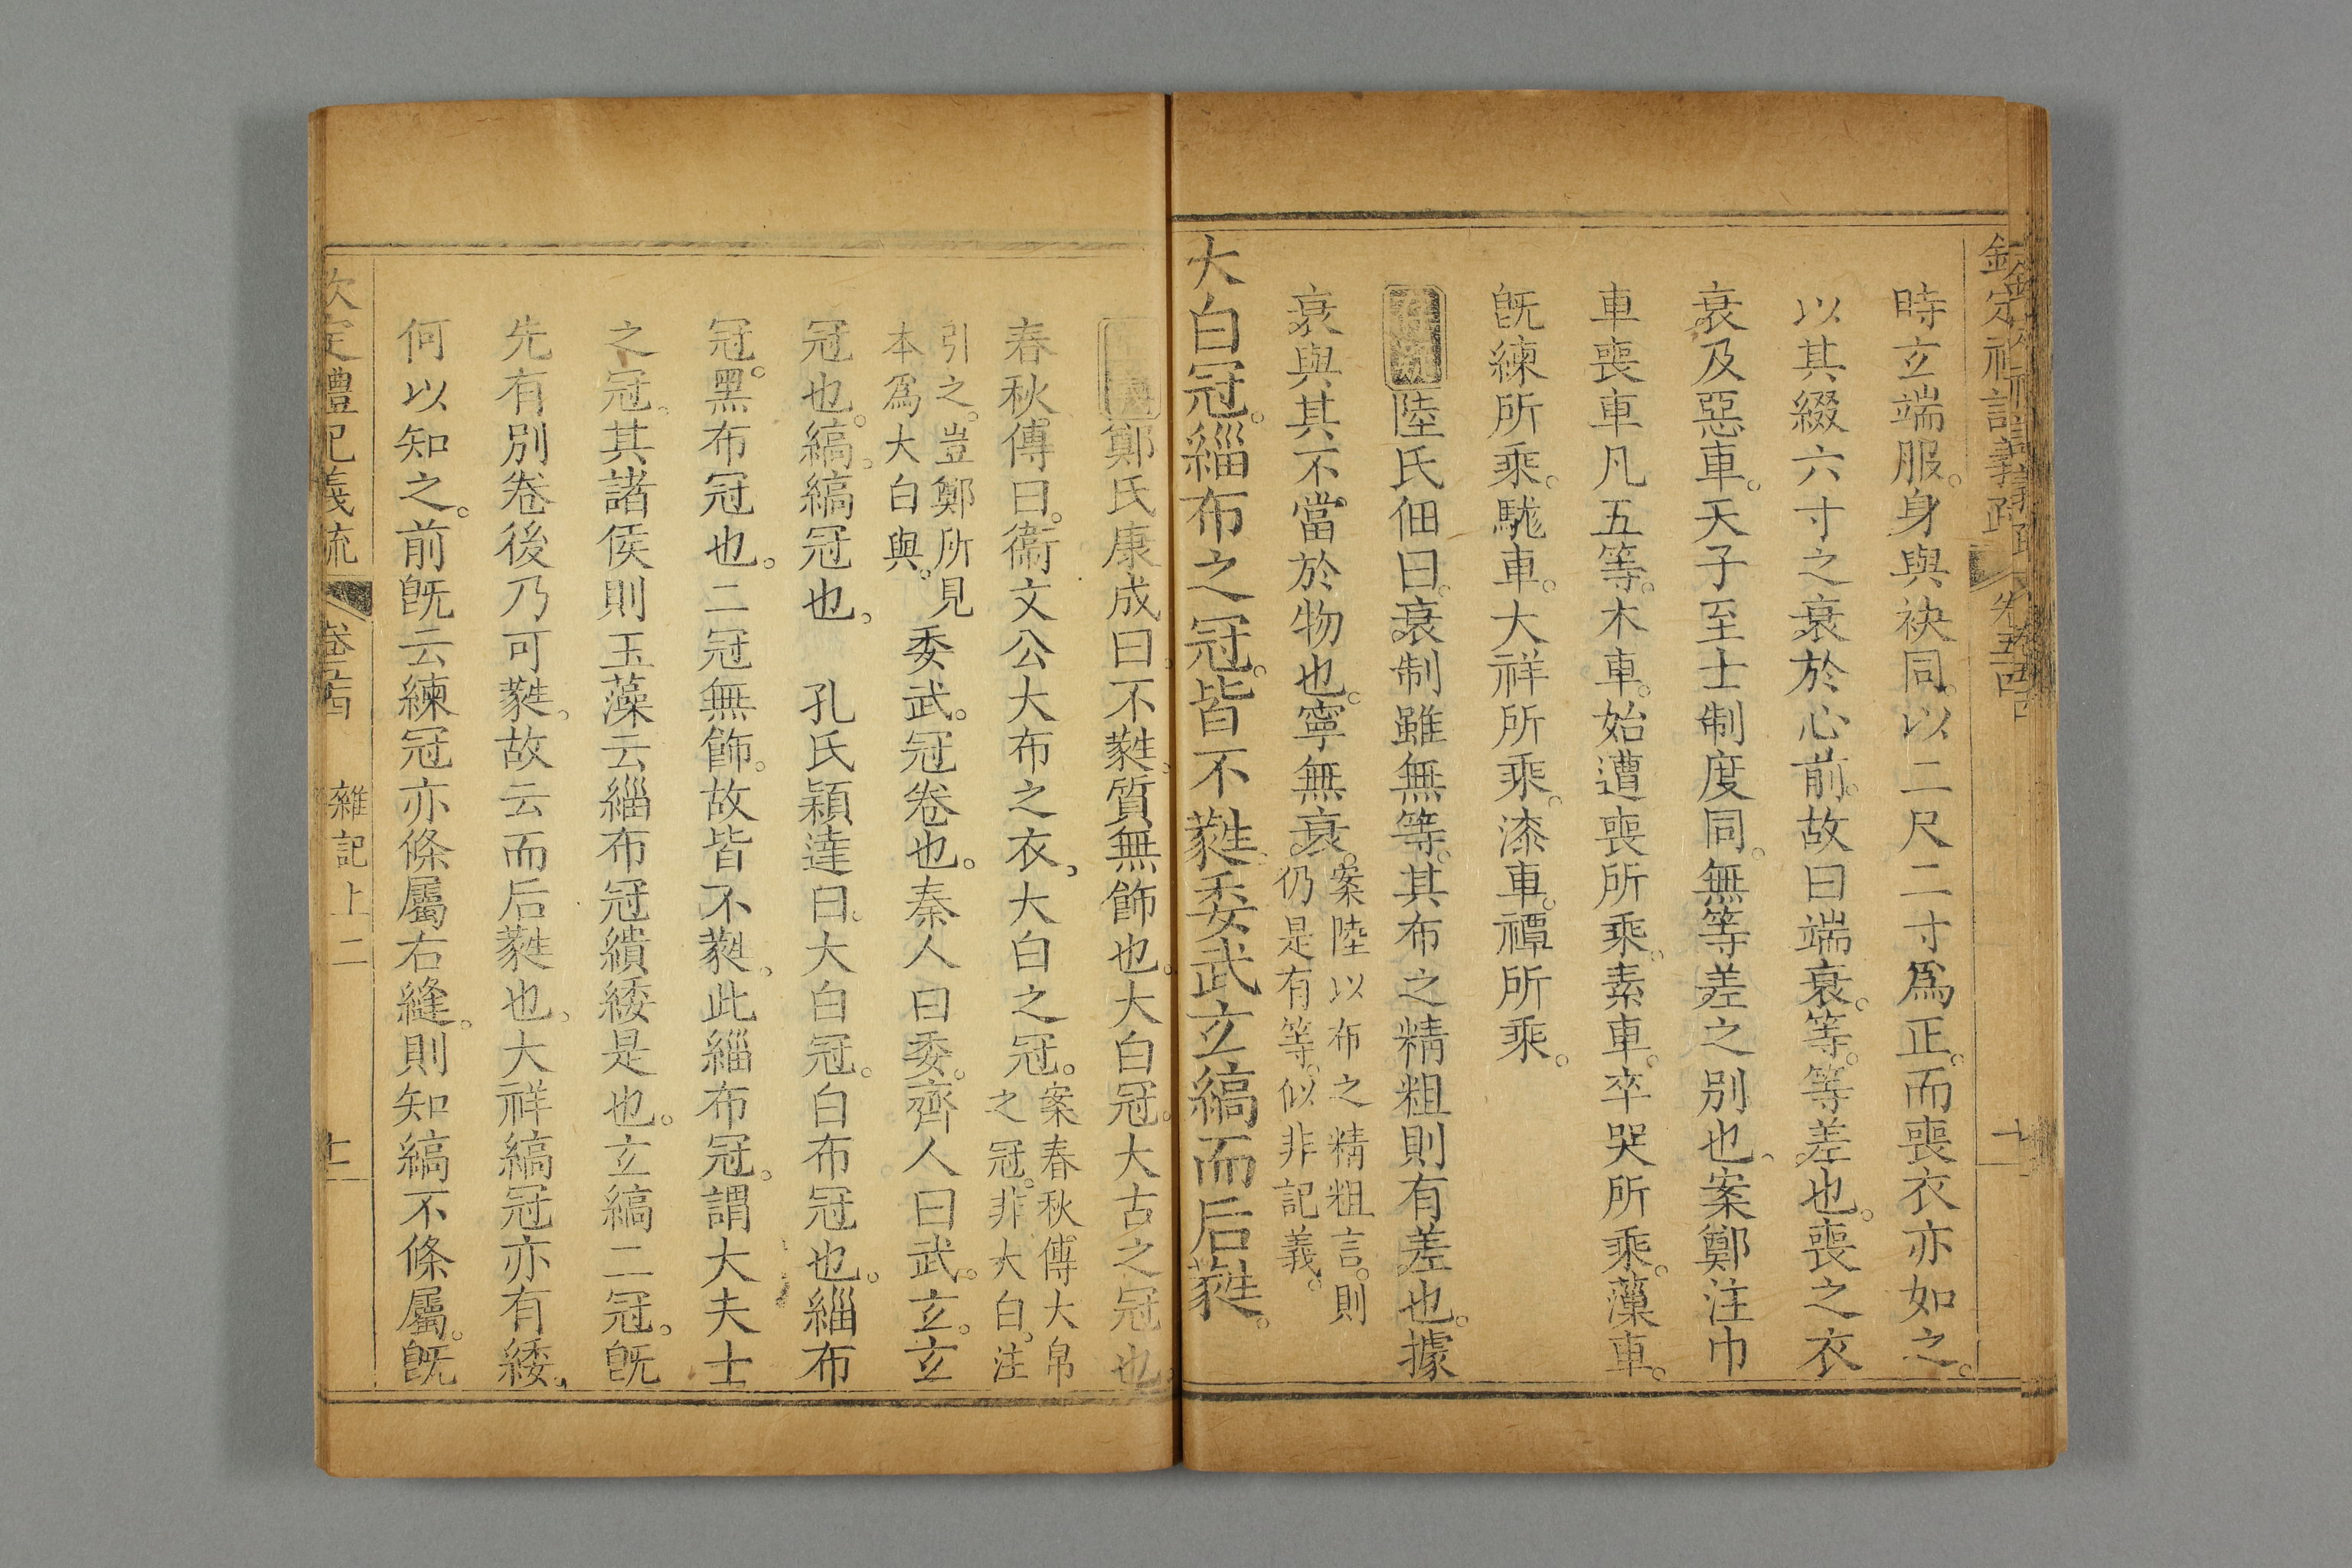 時玄端服。身與袂同。以二尺二寸爲正。而喪衣亦如之。
以其綴六寸之衰於心前。故曰端衰。等。等差也。喪之衣
衰及惡車。天子至士制度同。無等差之別也。案鄭注巾
車喪車凡五等。木車。始遭喪所乘。素車。卒哭所乘。薻車。
旣練所乘。駹車。大祥所乘。漆車。禫所乘。
陸氏佃曰。衰制雖無等。其布之精粗則有差也。據
衰與其不當於物也。寧無衰。案陸以布之精粗言。則
仍是有等。似非記義。
大白冠。緇布之冠。皆不蕤。委武玄縞而后蕤。
鄭氏康成曰。不蕤。質無飾也。大白冠。大古之冠也
春秋傳曰。衞文公大布之衣。大白之冠。案春秋傳大帛
之冠。非大白。注
引之。豈鄭所見
本爲大白與。委武。冠卷也。秦人曰委。齊人曰武。玄。玄
冠也。縞。縞冠也。 孔氏穎達曰。大白冠。白布冠也。緇布
冠。黑布冠也。二冠無飾。故皆不蕤。此緇布冠。謂大夫士
之冠。其諸侯則玉藻云緇布冠繢緌是也。玄縞二冠。旣
先有別卷後乃可蕤。故云而后蕤也。大祥縞冠亦有緌。
何以知之。前旣云練冠亦條屬右縫。則知縞不條屬。旣
欽定禮記義疏 卷五十四 雜記上二 十二